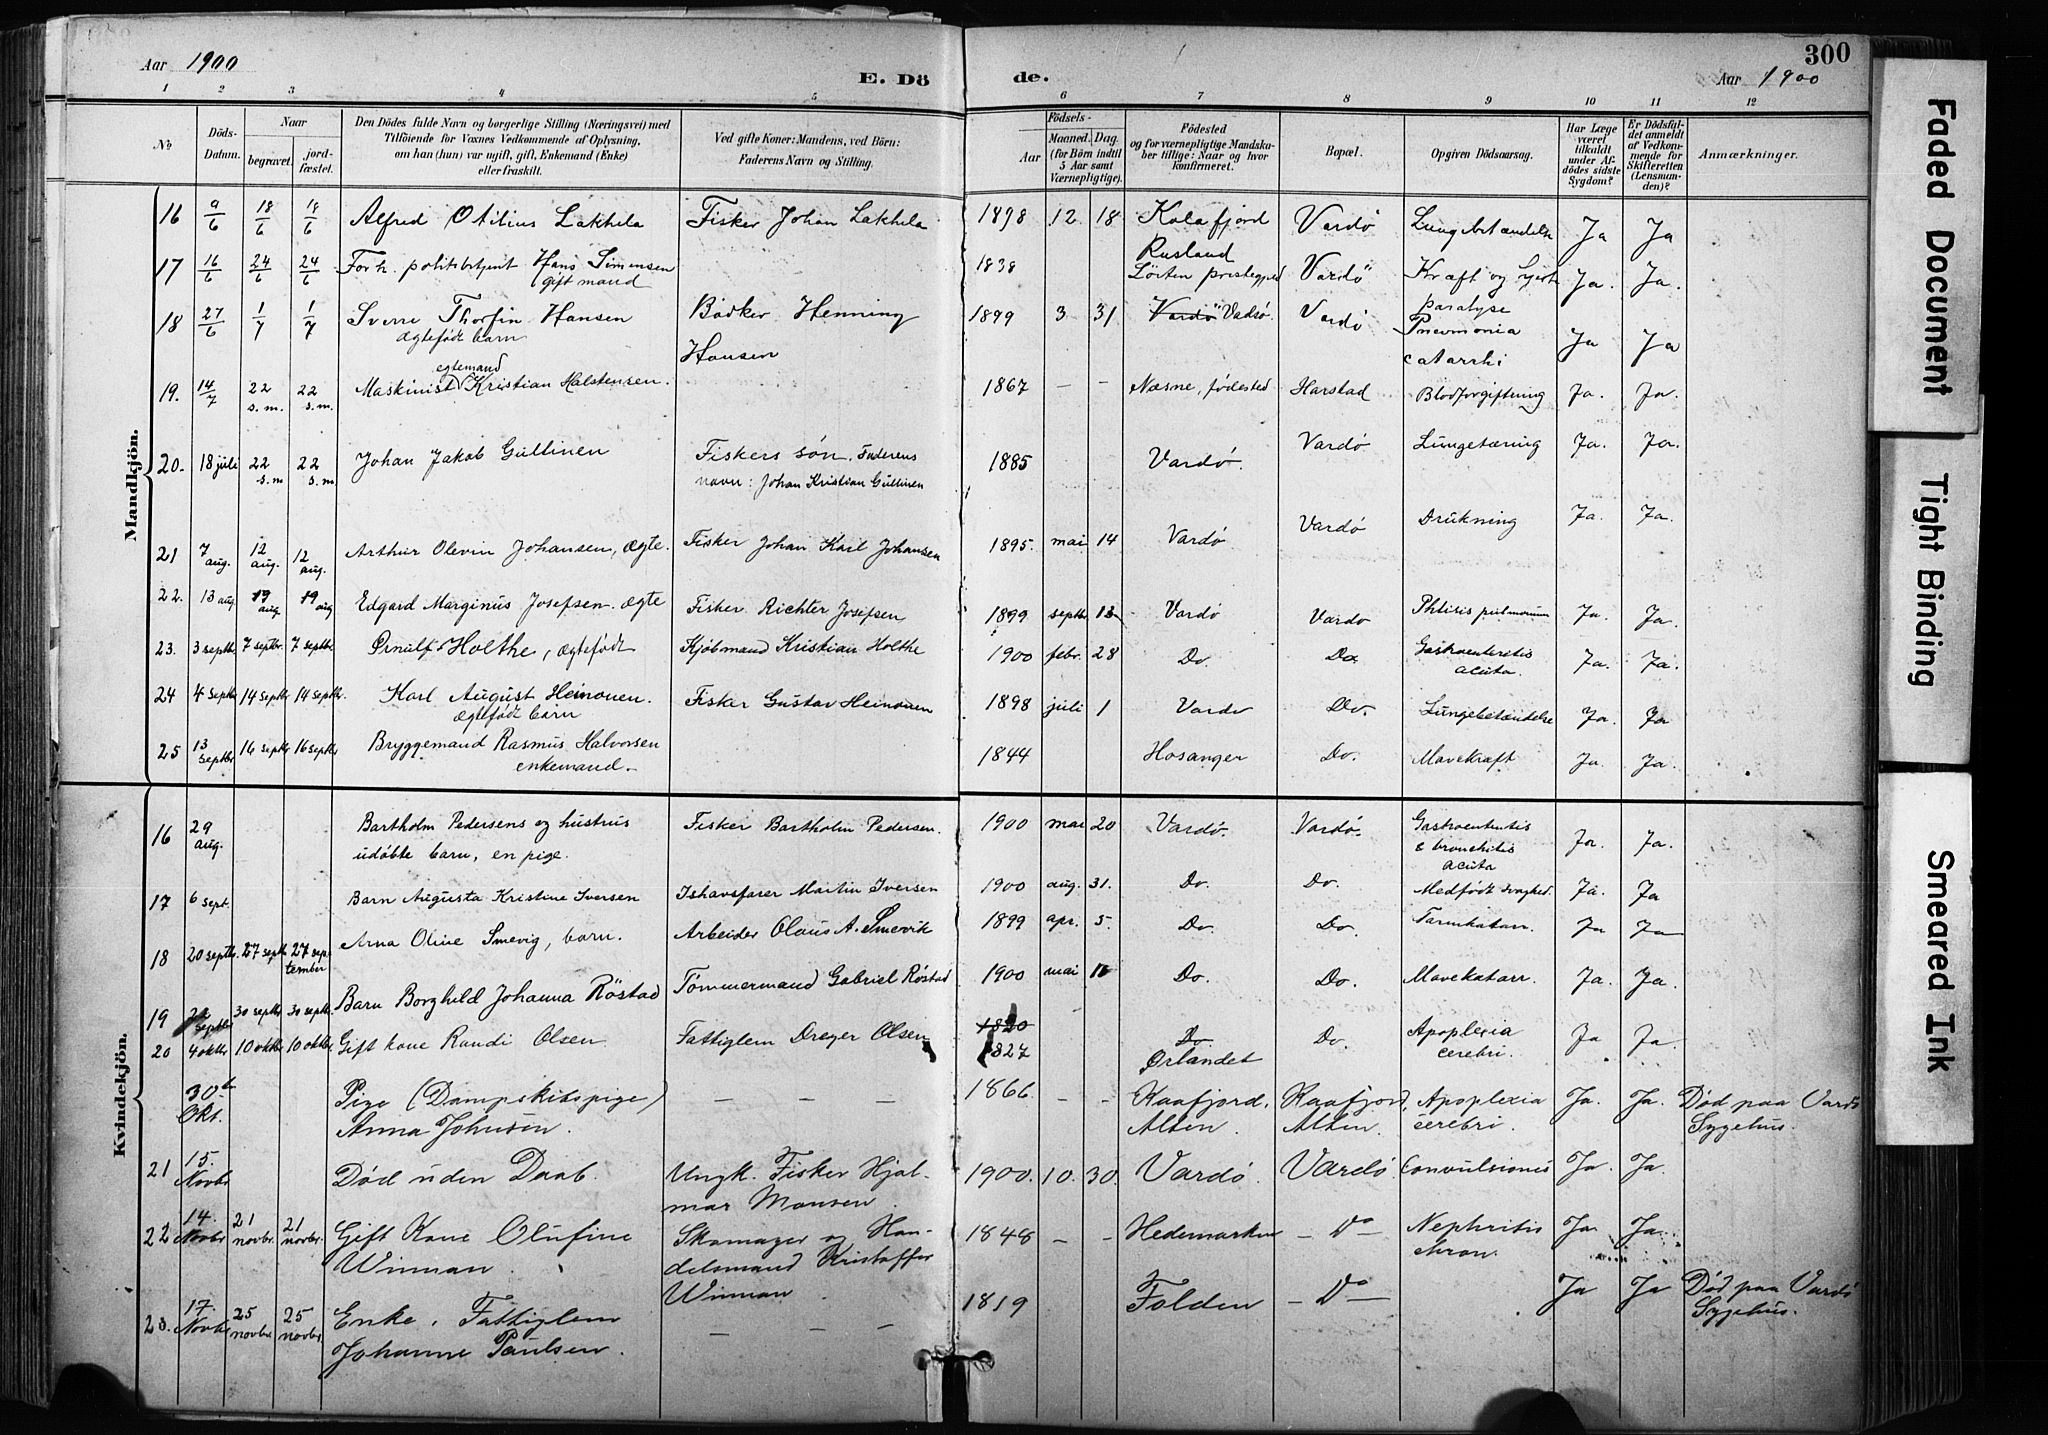 Aar 1900
E. Dö
de.
Aar 1900
300
1 2 3 4 5 6 7 8 9 10 11 12
№
Döds-Datum.
Naar
begravet.
jord-fæstet.
Den Dödes fulde Navn og borgerlige Stilling (Næringsvei) med
Tilföiende for Voxnes Vedkommende af Oplysning,
om han (hun) var ugift, gift, Enkemand (Enke)
eller fraskilt.
Ved gifte Koner: Mandens, ved Börn:
Faderens Navn og Stilling.
Födsels-
Aar
Maaned. Dag.
(for Börn indtil
5 Aar samt
Værnepligtige).
Födested
og for værnepligtige Mandska-
ber tillige: Naar og hvor
konfirmeret.
Bopæl.
Opgiven Dödsaarsag.
Har Læge
været
tilkaldt
under Af-
dödes sidste
Sygdom?
Er Dödsfal-
det anmeldt
af Vedkom-
mende for
Skifteretten
(Lensman-
den)?
Anmærkninger.
Mandkjön.
16 9/6 18/6 18/6 Alfred Otilius Lakhela Fisker Johan Lakhela 1898 12 18 Kolafjord Rusland Vardø Lungebetændelse Ja Ja
17 16/6 24/6 24/6 Forh. politibetjent Hans Simensen gift mand 1838 Løiten prestegjed Vardø Kræft og hjerteparalyse Ja. Ja.
18 27/6 1/7 1/7 Sverre Thorfin Hansen ægtefødt barn Bødker Henning Hansen 1899 3 31 Vardø Vadsø. Vardø Pneumonia catarrhi Ja Ja
19. 14/7 22 s.m. 22 s.m. Maskinist egtemand Kristian Halstensen. 1867 – – Næsne, fødested Harstad Blodforgiftning Ja. Ja.
20. 18 juli 22 s.m. 22 s.m. Johan Jakob Gullinen Fiskers søn. Faderens navn: Johan Kristian Gullinen 1885 Vardø. Vardø Lungetæring Ja. Ja.
21 7 aug. 12 aug. 12 aug. Arthur Olevin Johansen, ægte. Fisker Johan Karl Johansen 1895. mai 14 Vardø Vardø Drukning Ja. Ja.
22. 13 aug. 19 aug 19 aug Edgard Marginus Josefsen. ægte Fisker Richter Josefsen 1899 septbr 13 Vardø Vardø Phtisis pulmonum Ja. Ja.
23. 3 septbr 7 septbr. 7 septbr. Ørnulf Holthe, ægtefødt Kjøbmand Kristian Holthe 1900 febr. 28 Do. Do Gastroenteritis acuta. Ja. Ja.
24 4 septbr 14 septbr 14 septbr. Karl August Heinonen. ægtefødt barn Fisker Gustav Heinonen 1898 juli 1 Vardø Do. Lungebetændelse Ja. Ja
25 13 septbr 16 septbr 16 septbr Bryggemand Rasmus Halvorsen enkemand. 1844 Hosanger Do. Mavekræft Ja. Ja.
Kvindekjön.
16 29 aug. Bartholm Pedersens og hustrus udøbte barn, en pige. Fisker Bartholm Pedersen. 1900 mai 20 Vardø. Vardø. Gastroenteritis & bronchitis acuta Ja. Ja.
17 6 sept. Barn Augusta Kristine Iversen Ishavsfarer Martin Iversen 1900 aug. 31. Do. Do. Medfødt svaghed. Ja. Ja
18 20 septbr. 27 septb 27 september Arna Oline Smevig, barn. Arbeider Olaus A. Smevik 1899 apr. 5. Do. Do. Tarmkatarr. Ja Ja
19 septbr 30 septbr 30 septbr. Barn Borghild Johanna Røstad Tømmermand Gabriel Røstad 1900 mai Do. Do. Mavekatarr Ja. Ja.
20 4 oktbr 10 oktbr 10 oktbr. Gift kone Randi Olsen Fattiglem Dreyer Olsen 1820 1827 Do. Ørlandet Do. Apoplexia cerebri. Ja Ja.
30. Okt. Pige (Dampskibspige) Anna Johnsen. – – – 1866 – – Kaafjord, Alten. Kaafjord, Alten. Apoplexia cerebri. Ja. Ja. Død paa Vardø Sygehus.
21 15. Novbr Død uden Daab. Ungk. Fisker Hjalmar Monsen 1900. 10. 30. Vardø. Vardø Convulsiones Ja. Ja.
22 14. Novbr 21 novbr. 21 novbr. Gift Kone Olufine Winman. Skomager og Handelsmand Kristoffer Winman. 1848 – – Hedemarken – Do – Nephritis chron. Ja. Ja.
23. 17. Novbr 25 novbr. 25 novbr Enke, Fattiglem Johanne Paulsen. – – – 1819 Folden – Do – Ja Ja Død paa Vardø Sygehus.
Faded Document
Tight Binding
Smeared Ink